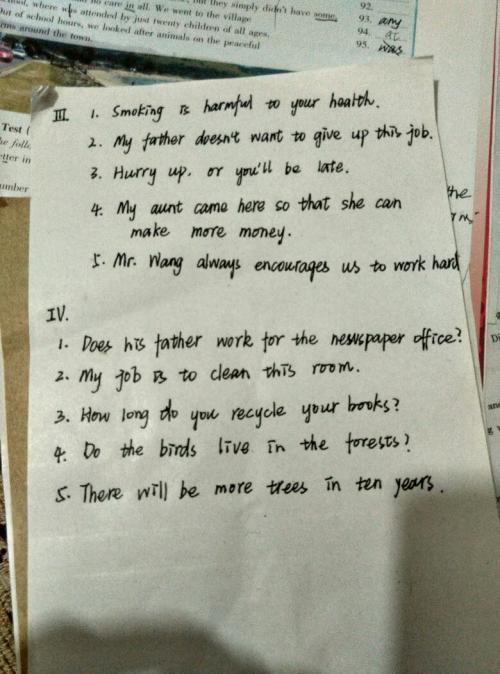 no care in all. We went to the village
but they simply didn't have some.
where was attended by just twenty children of all ages.
Out of school hours, we looked after animals on the peaceful
around the town.
92.
93. any
94. at
95. was
Test
etter in
umber
the
III. 1. Smoking is harmful to your health.
2. My father doesn't want to give up this job.
3. Hurry up. or you'll be late.
4. My aunt came here so that she can
make more money.
5. Mr. Wang always encourages us to work hard
IV.
1. Does his father work for the newspaper office?
2. My job is to clean this room.
3. How long do you recycle your books?
4. Do the birds live in the forests?
5. There will be more trees in ten years.